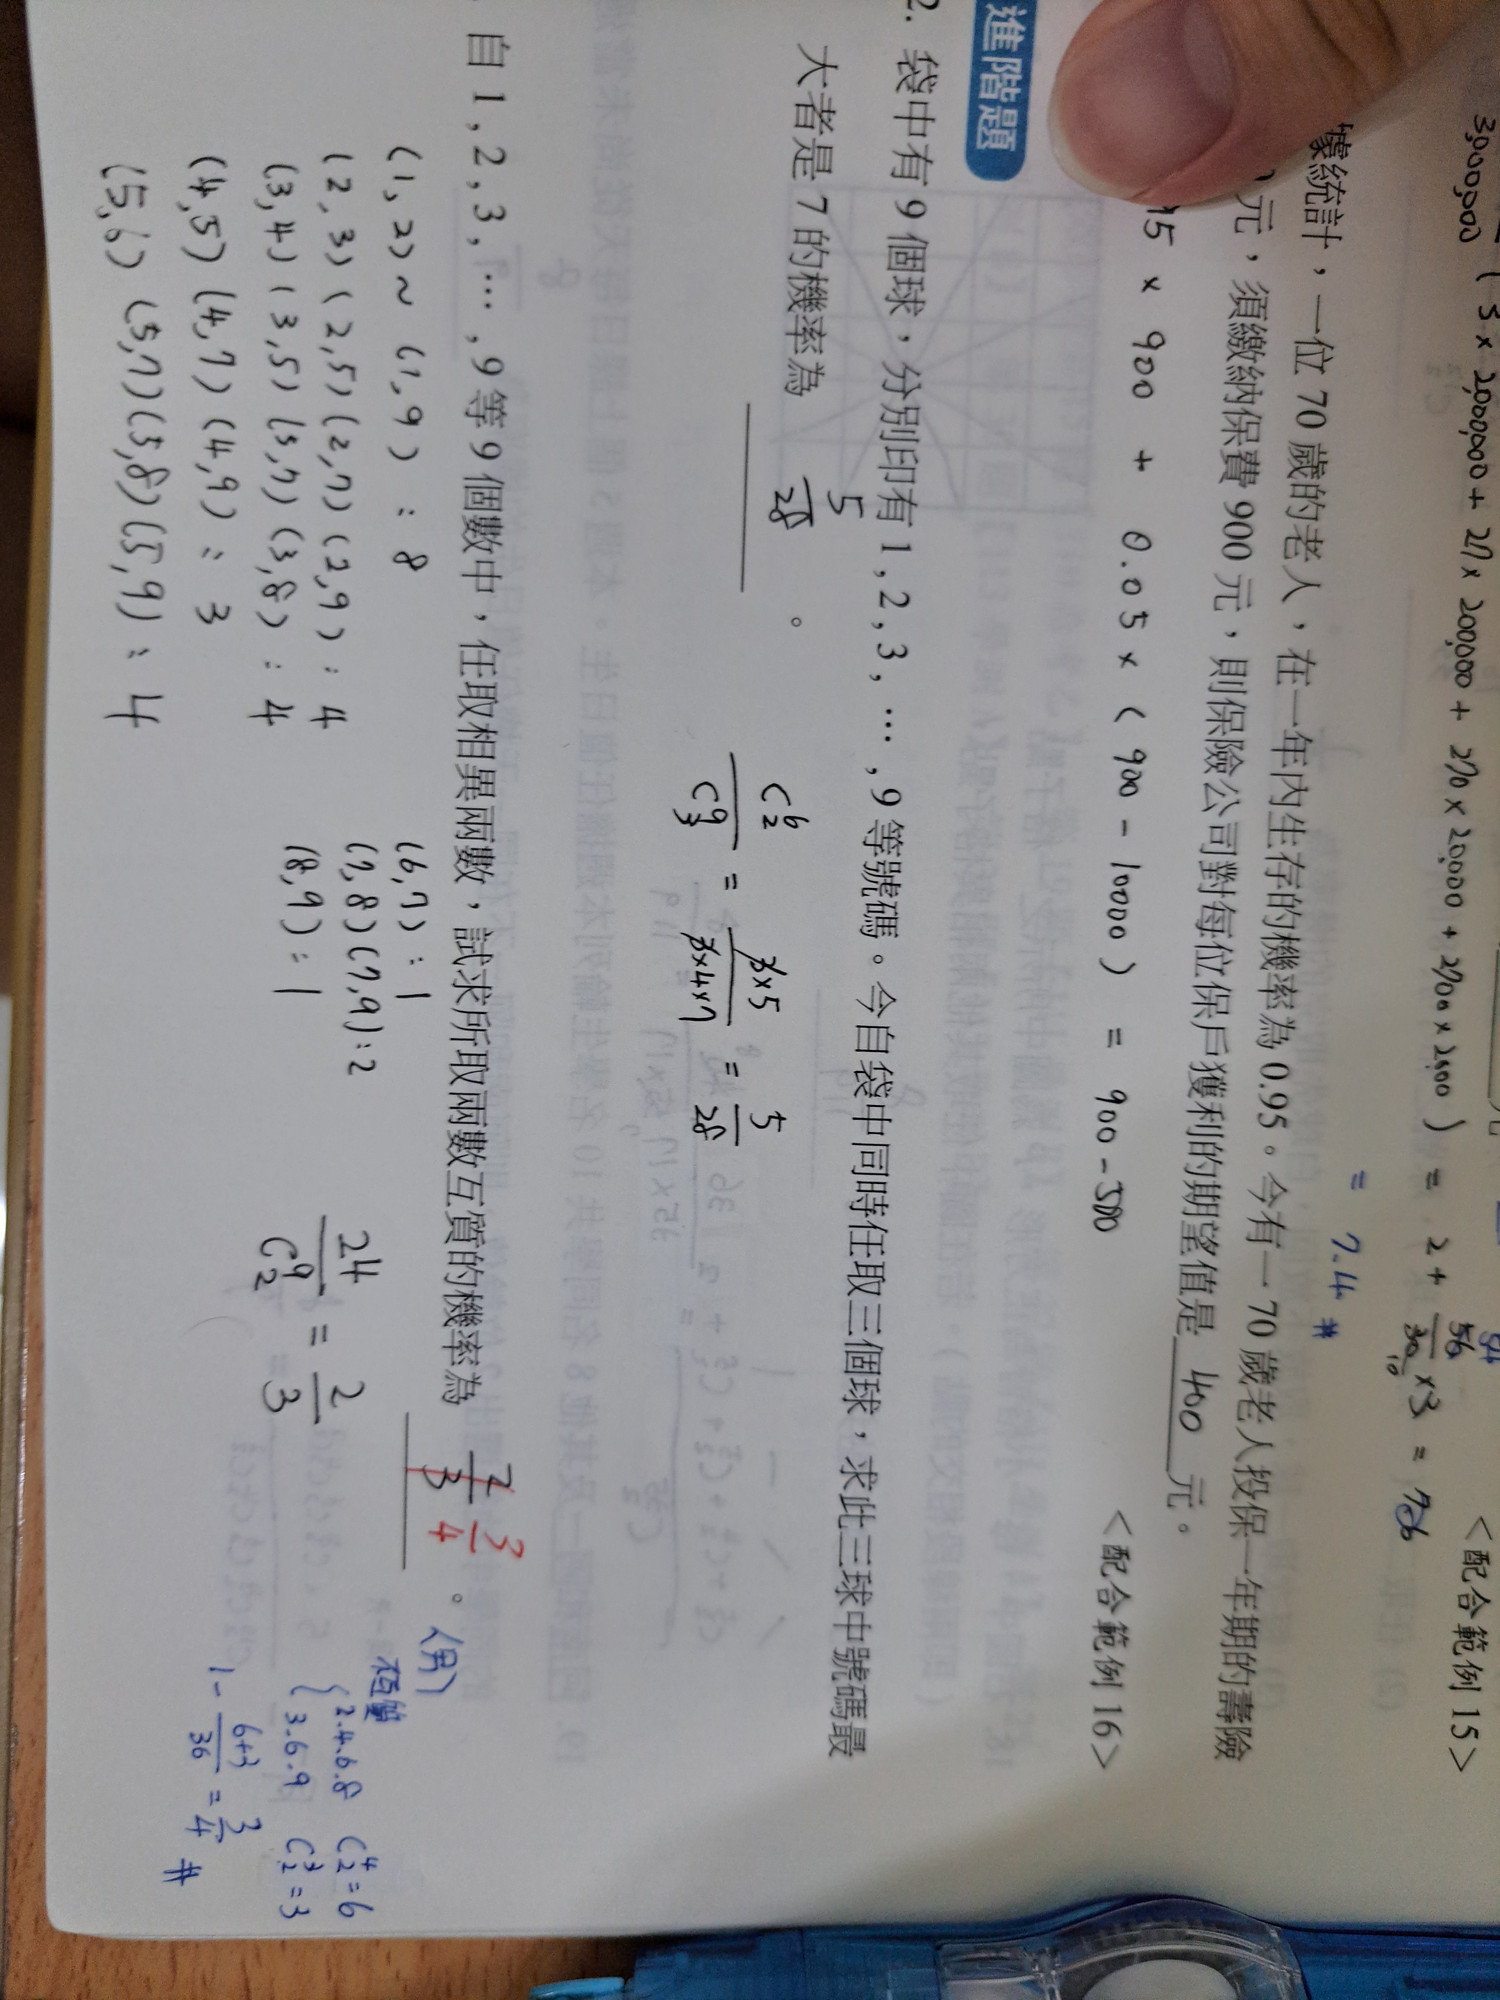 3,000,000 ( 3 × 2,000,000 + 27 × 200,000 + 270 × 20,000 + 2700 × 2,000 ) = 2 +
× 3 =
= 7.4 #
<配合範例 15>
據統計，一位 70 歲的老人，在一年內生存的機率為 0.95。今有一 70 歲老人投保一年期的壽險
元，須繳納保費 900 元，則保險公司對每位保戶獲利的期望值是 400 元。
95 × 900 + 0.05 × ( 900 - 10000 ) = 900 - 500
<配合範例 16>
進階題
2. 袋中有 9 個球，分別印有 1 , 2 , 3 , … , 9 等號碼。今自袋中同時任取三個球，求此三球中號碼最
大者是 7 的機率為 5/28 。
C^6_2 / C^9_3 = 3×5 / 3×4×7 = 5/28
自 1 , 2 , 3 , … , 9 等 9 個數中，任取相異兩數，試求所取兩數互質的機率為 2/3 3/4 。
(1,2) ~ (1,9) : 8
(2,3) (2,5) (2,7) (2,9) : 4
(3,4) (3,5) (3,7) (3,8) : 4
(4,5) (4,7) (4,9) : 3
(5,6) (5,7) (5,8) (5,9) : 4
(6,7) : 1
(7,8) (7,9) : 2
(8,9) : 1
24 / C^9_2 = 2/3
(另)
質
{ 2.4.6.8 C^4_2 = 6
3.6.9 C^3_2 = 3
1 - 6+3 / 36 = 3/4 #